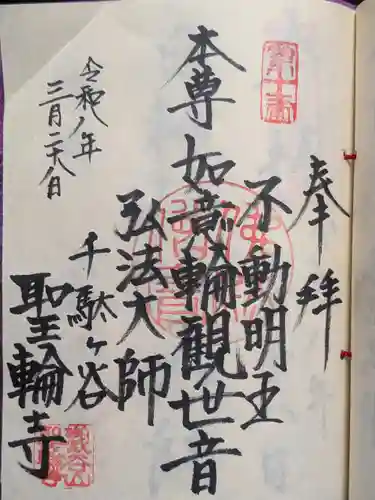 奉拝
不動明王
本尊如意輪観世音
弘法大師
千駄ヶ谷
聖輪寺
令和八年
三月二十八日